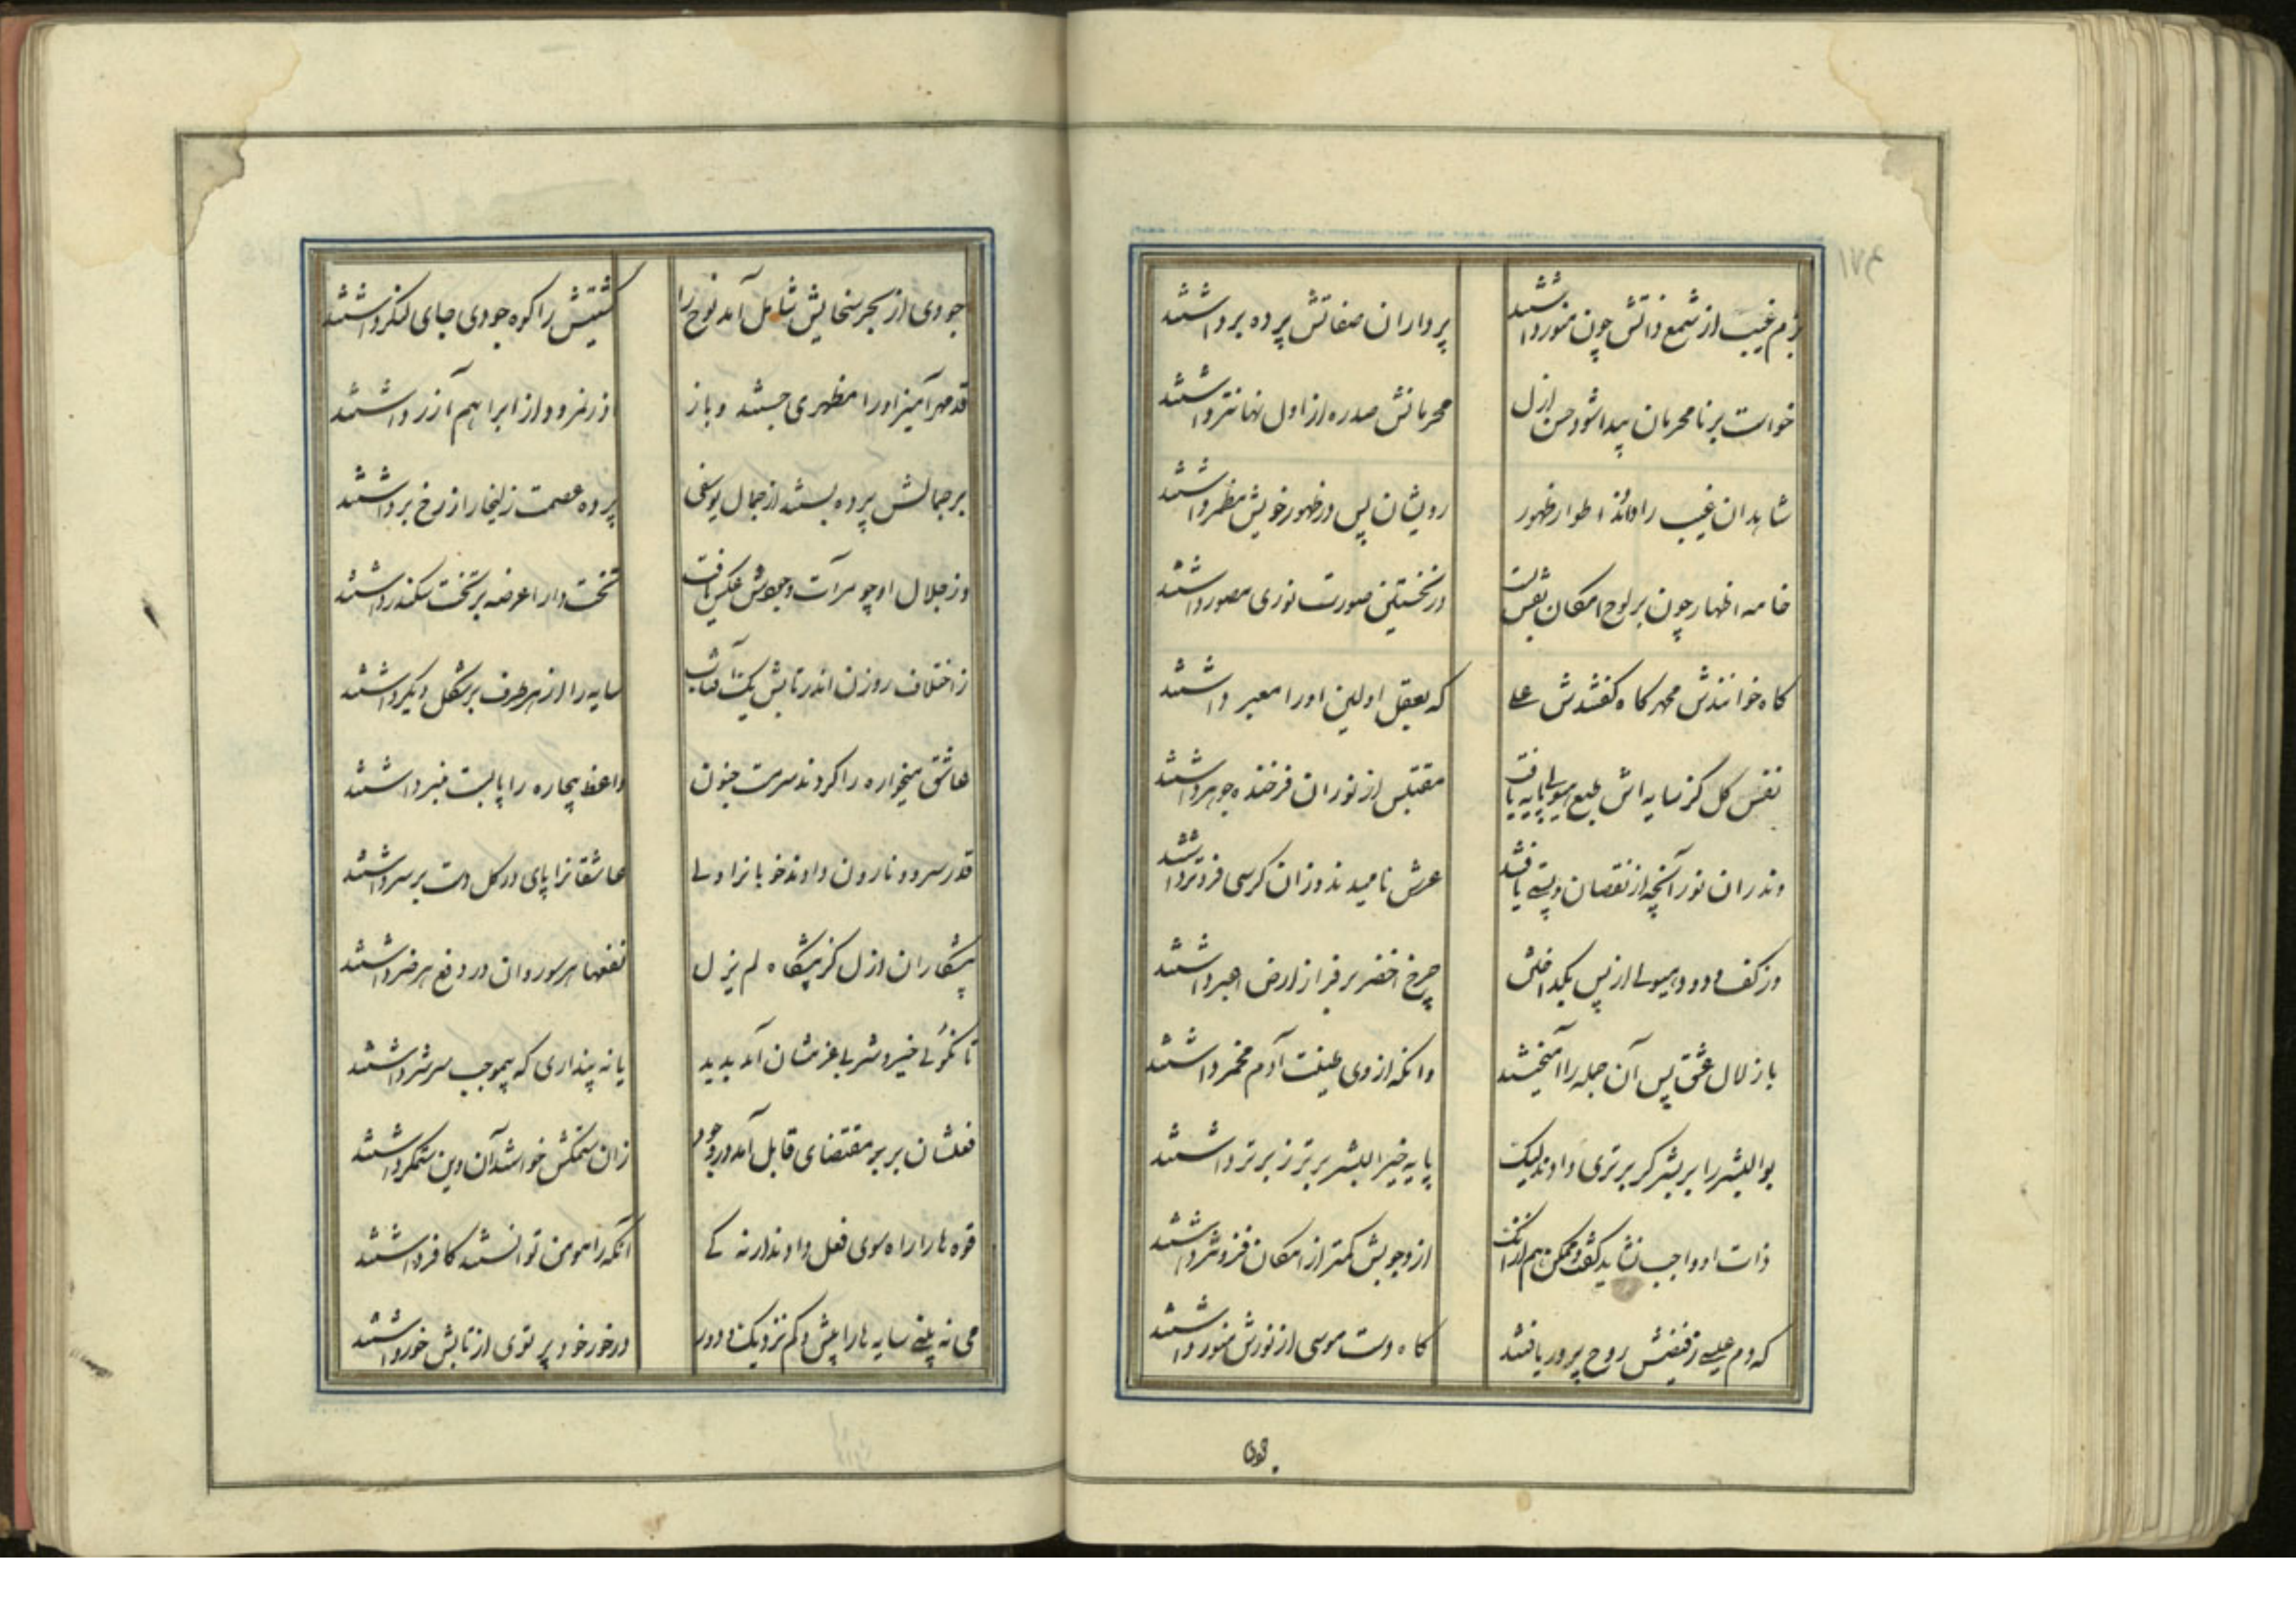 ۱۷۴
بزم غیب از شمع ذاتش چون منور داشتند
پرداران صفاتش پرده بر داشتند
خواست بر نامحرمان پیدا شود حسن ازل
محرمانش صدره از اول نهانتر داشتند
شاهدان غیب را اطوار ظهور
رویشان پس در ظهور خویش مظهر داشتند
خامه اظهار چون بر لوح امکان نقش بست
در نخستین صورت نوری مصور داشتند
کاه خوانندش محمد کاه کفتندش علی
که بعقل اولین اورا معبر داشتند
نفس کل کز سایه اش طبع هیولی پایه یافت
مقتبس از نور ان فرخنده جوهر داشتند
وندران نور آنچه از نقصان و پستی یافتند
عرش نامیدند وزان کرسی فروتر داشتند
وز کف و دود هیولی از پس بکداختن
چرخ اخضر بر فراز ارض اغبر داشتند
باز لال عشق پس آن جمله را آمیختند
وانکه از وی طینت آدم مخمر داشتند
بوالبشر را بر بشر کر برتری دادند لیک
پایه خیرالبشر برتر ز برتر داشتند
ذات او واجب نشاید کفت و ممکن هم از انک
از وجوبش کمتر از امکان فزونتر داشتند
که دم عیسی ز فیضش روح پرور یافتند
کاه دست موسی از نورش منور داشتند
جودی از بحر سخایش شامل آمد نوح را
کشتیش را کوه جودی جای لنکر داشتند
قدمهر آمیز اورا مظهری جستند و باز
از نمرود از ابراهیم آزر داشتند
بر جمالش پرده بستند از جمال یوسفی
پرده عصمت زلیخا را از رخ بر داشتند
وز جلال او چو مرآت وجودش عکس یافت
تخت دارا عرضه بر تخت سکندر داشتند
ز اختلاف روزن اندر تابش یک آفتاب
سایه را از هر طرف بر شکل دیکر داشتند
عاشق میخواره را کردند سرمست جنون
واعظ بیچاره را پابست منبر داشتند
قدر سرو و نارون دادند خوبانرا ولی
عاشقانرا پای در کل دست بر سر داشتند
پیشکاران ازل کز پیشکاه لم یزل
نفعها هر سو روان در دفع هر ضر داشتند
تا نکوئی خیر و شر بی عزمشان آمد پدید
یا نه پنداری که بیموجب سر شر داشتند
فعلشان بر بر مقتضای قابل آمد در وجود
زان ستمکش خواستند آن وین ستمکر داشتند
قوه ها را راه سوی فعل دادند ارنه کی
آنکه را مومن توانستند کافر داشتند
می نه بینی سایه ها را بیش و کم نزدیک و دور
در خور خود پرتوی از تابش خور داشتند
جودی